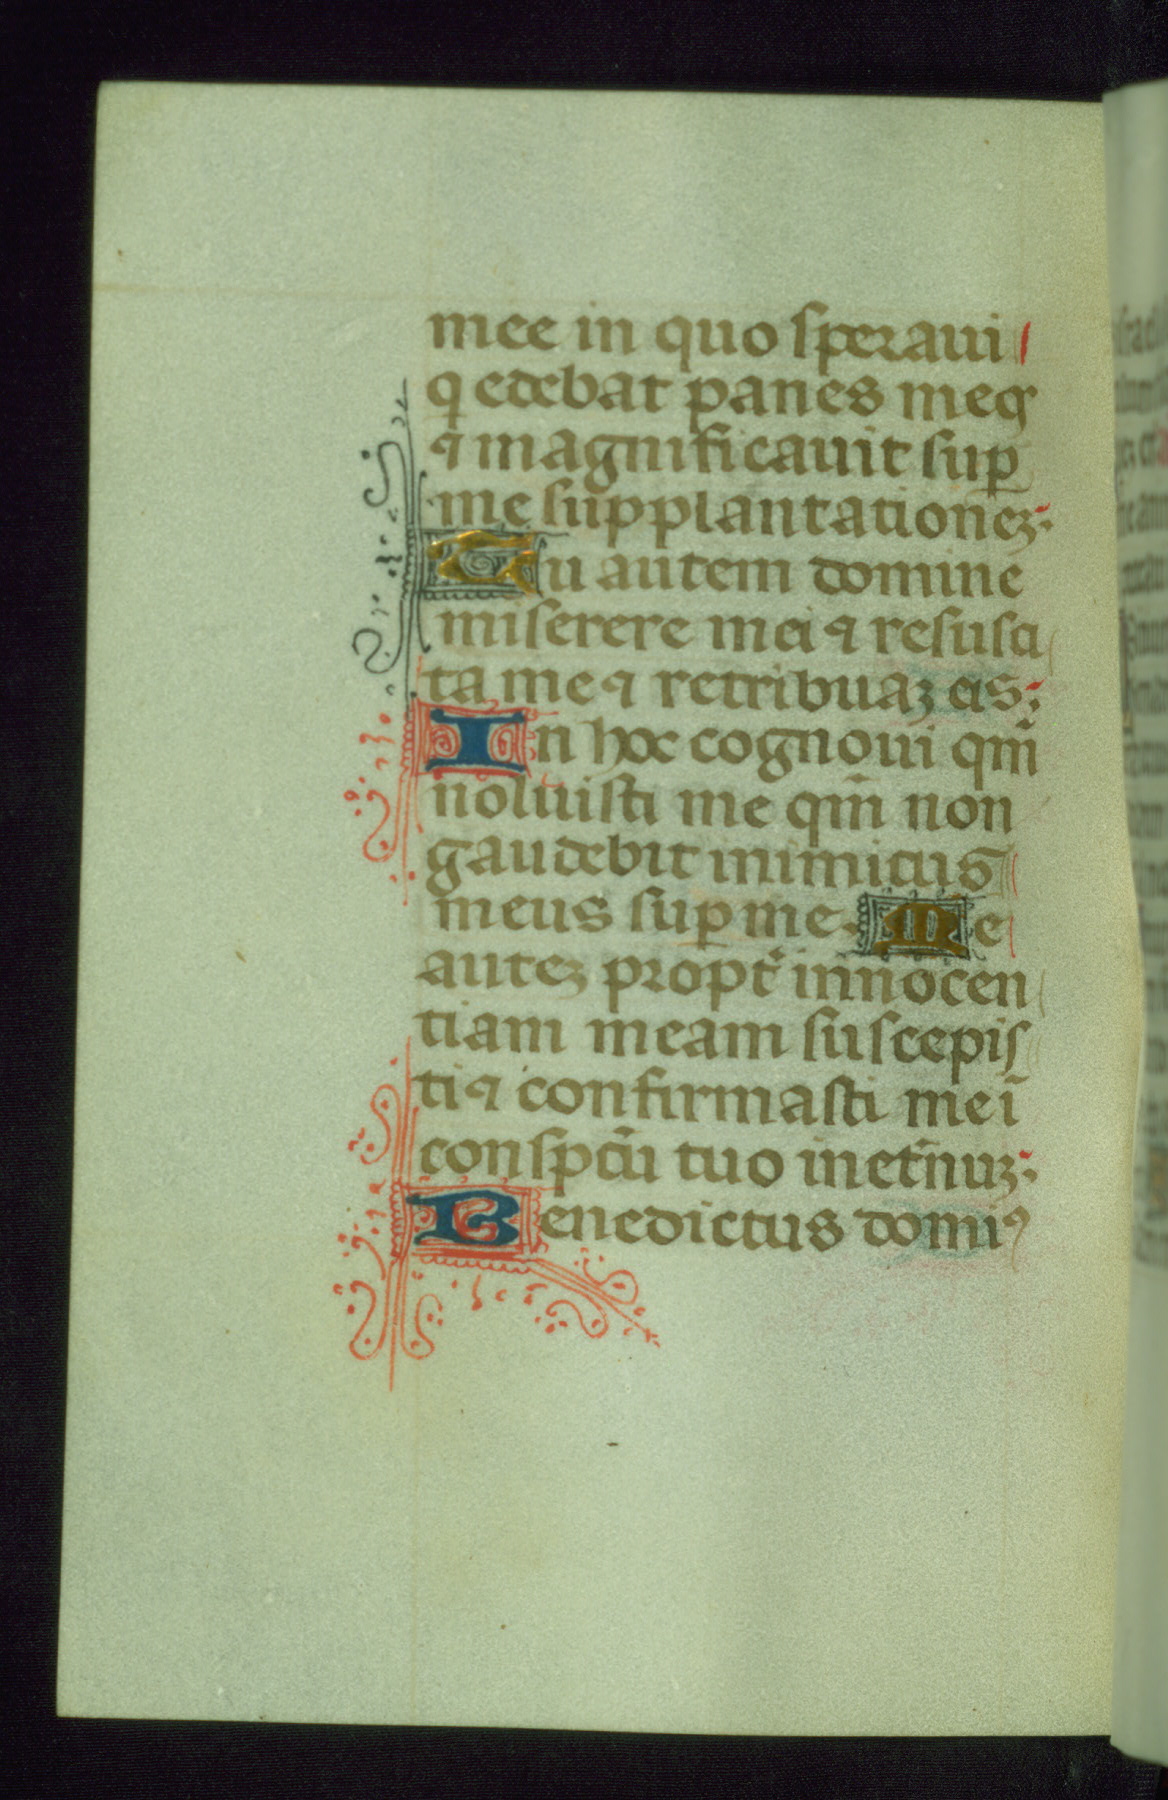 mee in quo speraui
q edebat panes meos
⁊ magnificauit sup
me supplantationez.
Tu autem domine
miserere mei ⁊ resusci
ta me ⁊ retribuaz eis.
In hoc cognoui qm̄
noluisti me qm̄ non
gaudebit inimicus
meus sup me. Me
autez propt̉ innocen
tiam meam suscepis
ti ⁊ confirmasti me ī
conspc̄u tuo in et̄nuz.
Benedictus domiꝰ